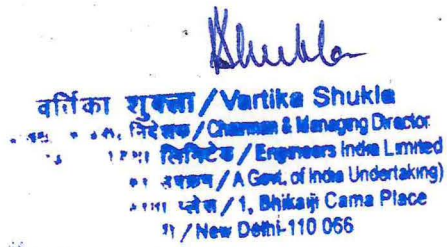 Shukla
वर्तिका शुक्ला / Vartika Shukla
निदेशक / Chairman & Managing Director
लिमिटेड / Engineers India Limited
उपक्रम / A Govt. of India Undertaking)
प्लेस / 1, Bhikaiji Cama Place
/ New Delhi-110 066